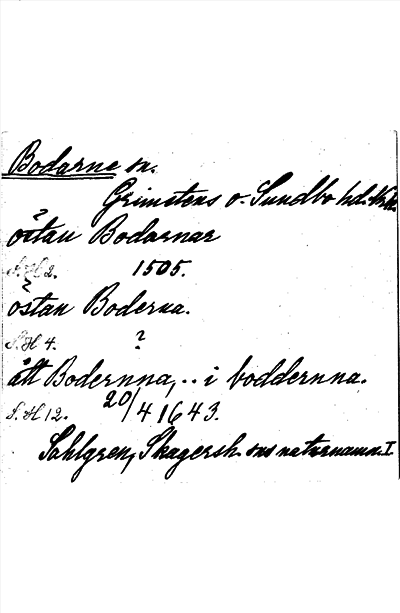 Bodarne sn.
Grimstens o. Sundbo hd.
?
östan Bodarnar
S. H 2. 1505.
ostan Boderna.
S. H 4. ?
ått Bodernna, .. i boddernna.
S. H 12. 20/4 1643.
Sahlgren, Skagersh. sns naturnamn. I